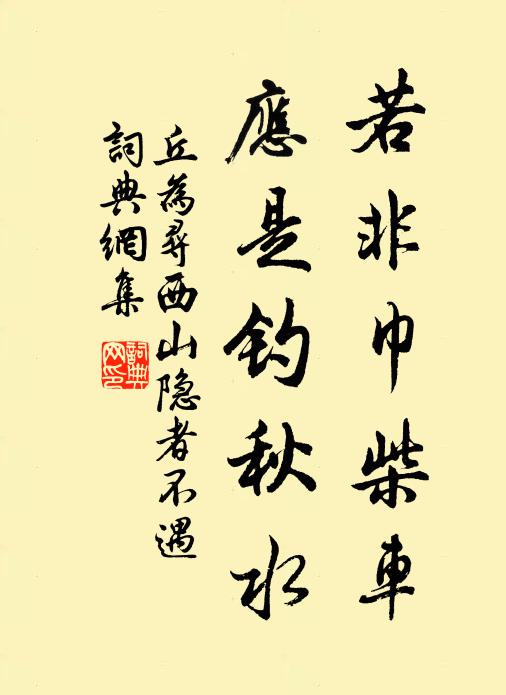 若非巾柴車
應是钓秋水
丘為尋西山隐者不遇
詞典網集
詞典网印